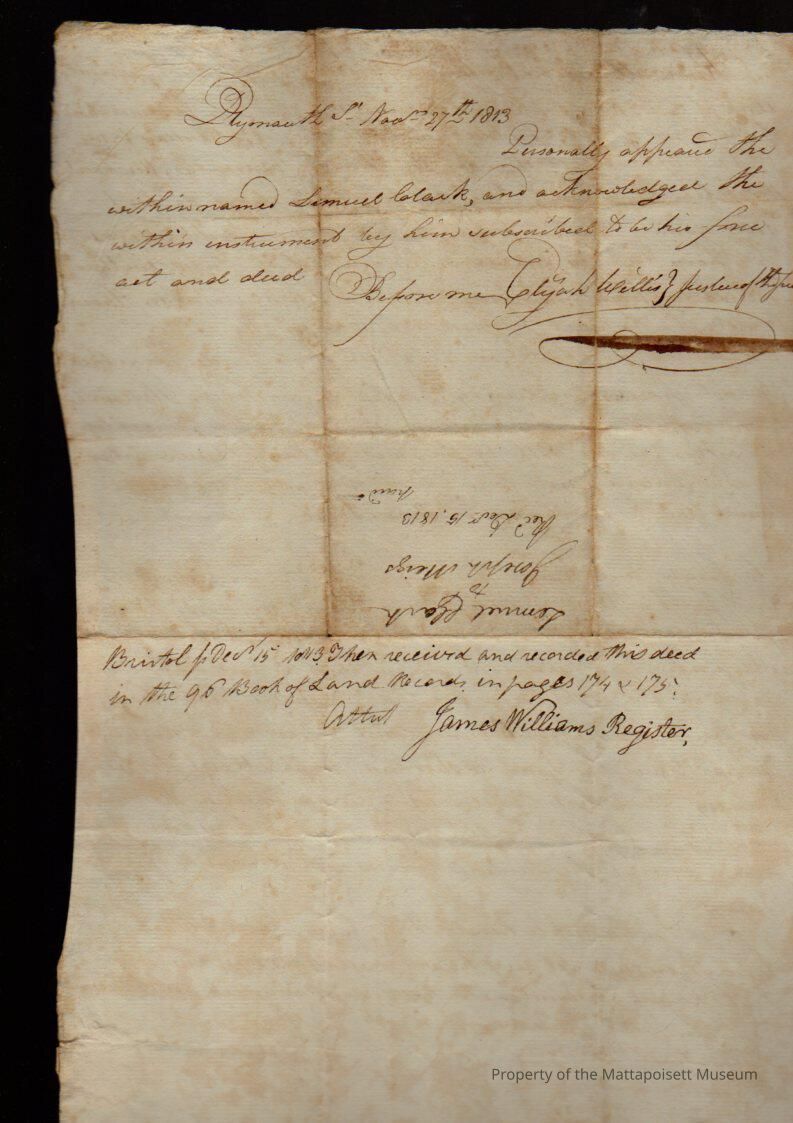 Plymouth Ss. Novr. 27th 1813
Personally appeared the
within named Lemuel Clark, and acknowledged the
within instrument by him subscribed to be his free
act and deed Before me Elijah Willis} Justice of the
Lemuel Clark
to
Joseph Meigs
Recd Decr 15. 1813
Bristol ss Decr 15 1813 Then received and recorded this deed
in the 96 Book of Land Records in pages 174 & 175.
Attest James Williams Register,
Property of the Mattapoisett Museum